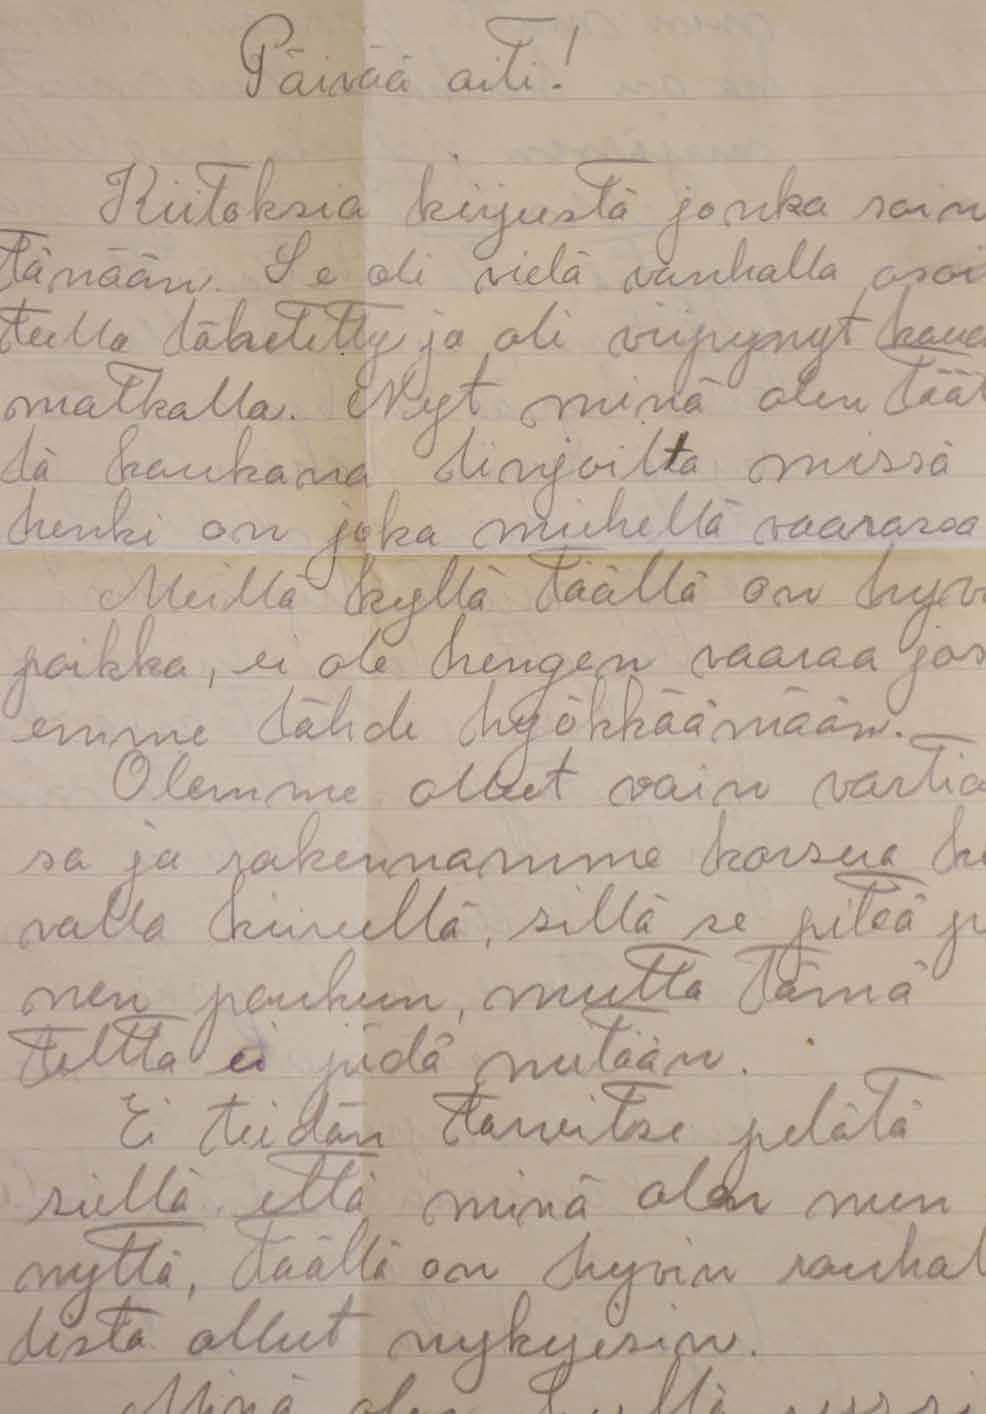 Päivää äiti!
Kiitoksia kirjestä jonka sain
tänään. Se oli vielä vanhalla osoi
teella lähetetty ja oli viipynyt kaua
matkalla. Nyt minä olen täät
dä kaukana linjoilta missä
henki on joka miehellä vaarassa
Meillä kyllä täällä on hyvä
paikka, ei ole hengen vaaraa jos
emme lähde hyökkäämään.
Olemme olleet vain vartio
sa ja rakennamme korsua ko
valla kiireellä, sillä se pitää p
nen paukun, mutta tämä
teltta ei pidä mitään.
Ei teidän tarvitse pelätä
siellä että minä olen men
nyttä, täällä on hyvin rauhal
lista ollut nykyisin.
Minä olen